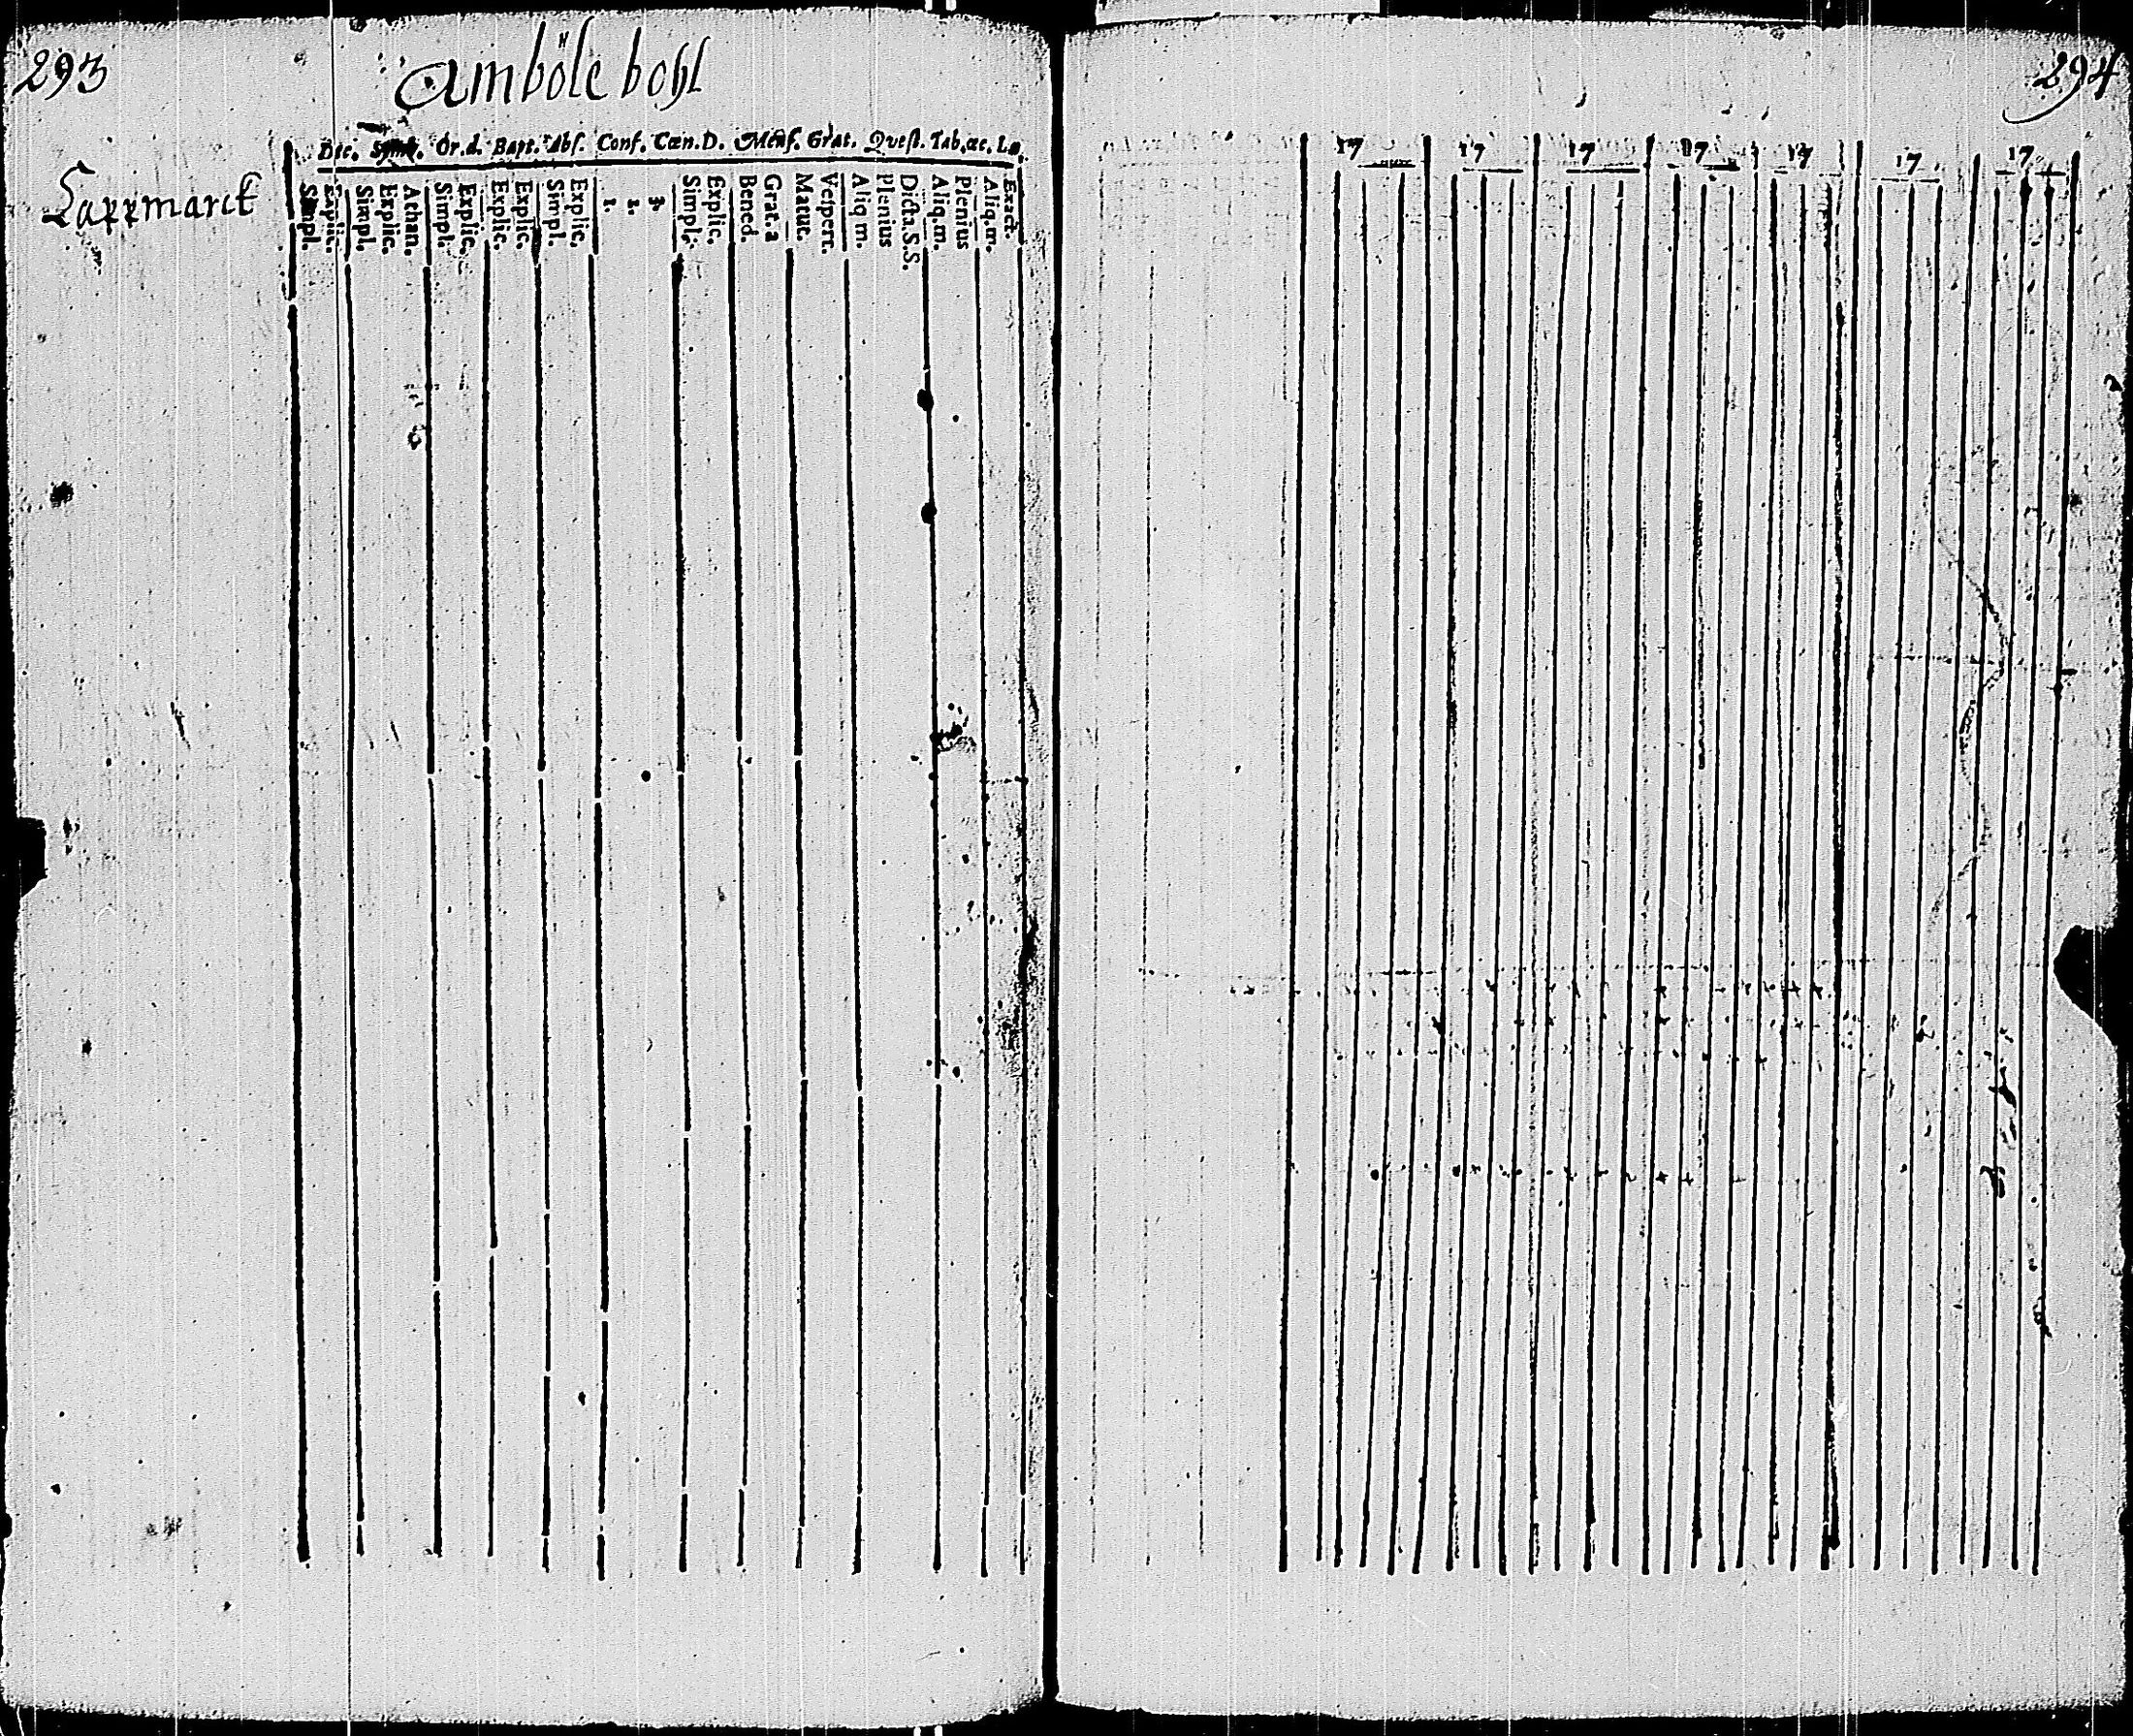 293
Amböle bohl
Dec. Symb. Or.d. Bapt. Abſ. Conf. Cœn.D. Menſ. Grat. Queſt. Tab.œc. L.
Lappmarck
Simpl.
Explic.
Simpl.
Explic.
Athan.
Simpl.
Explic.
Explic.
Explic.
Simpl.
Explic.
1.
2.
3.
Simpl.
Explic.
Bened.
Grat.a
Matut.
Veſpert.
Aliq m.
Plenius
Dicta.S.S.
Aliq.m.
Plenius
Aliq.m.
Exact.
294
17 17 17 17 17 17 17